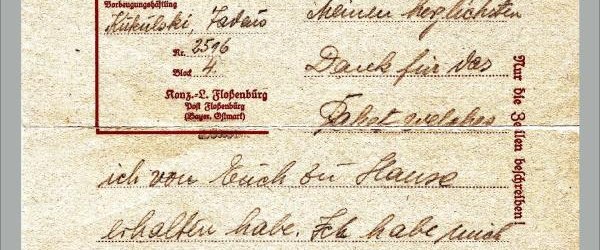 Vorbeugungshäftling
Kukulski, Tadäus
Nr. 2596
Block 4.
Konz.-L. Floßenbürg
Post Floßenbürg
(Bayer. Ostmark)
Meinen herzlichsten
Dank für das
Paket welches
ich von Euch zu Hause
erhalten habe. Ich habe mich
Nur die Zeilen beschreiben!